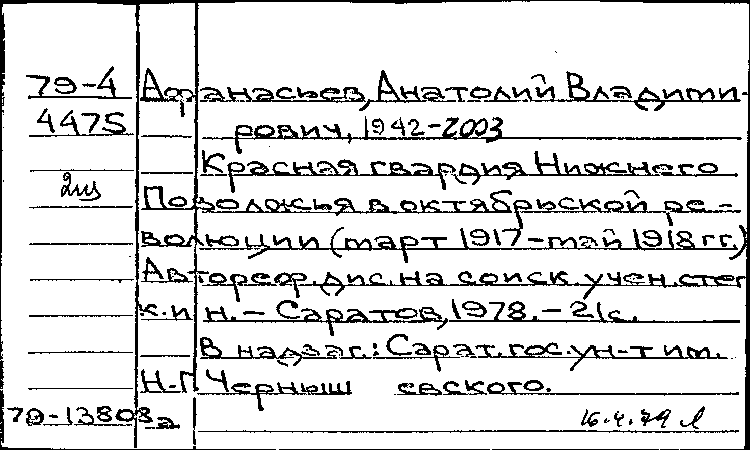 79-4 Афанасьев, Анатолий Владими-
4475 рович, 1942-2003
Красная гвардия Нижнего
2 Поволжья в октябрьской ре-
волюции (март 1917-май 1918 гг.)
Автореф. дис. на соиск. учен. степ
к.и н. - Саратов, 1978. - 21с.
В надзаг.: Сарат. гос. ун-т им.
Н.Г. Черныш евского.
79-13808а 16.4.79